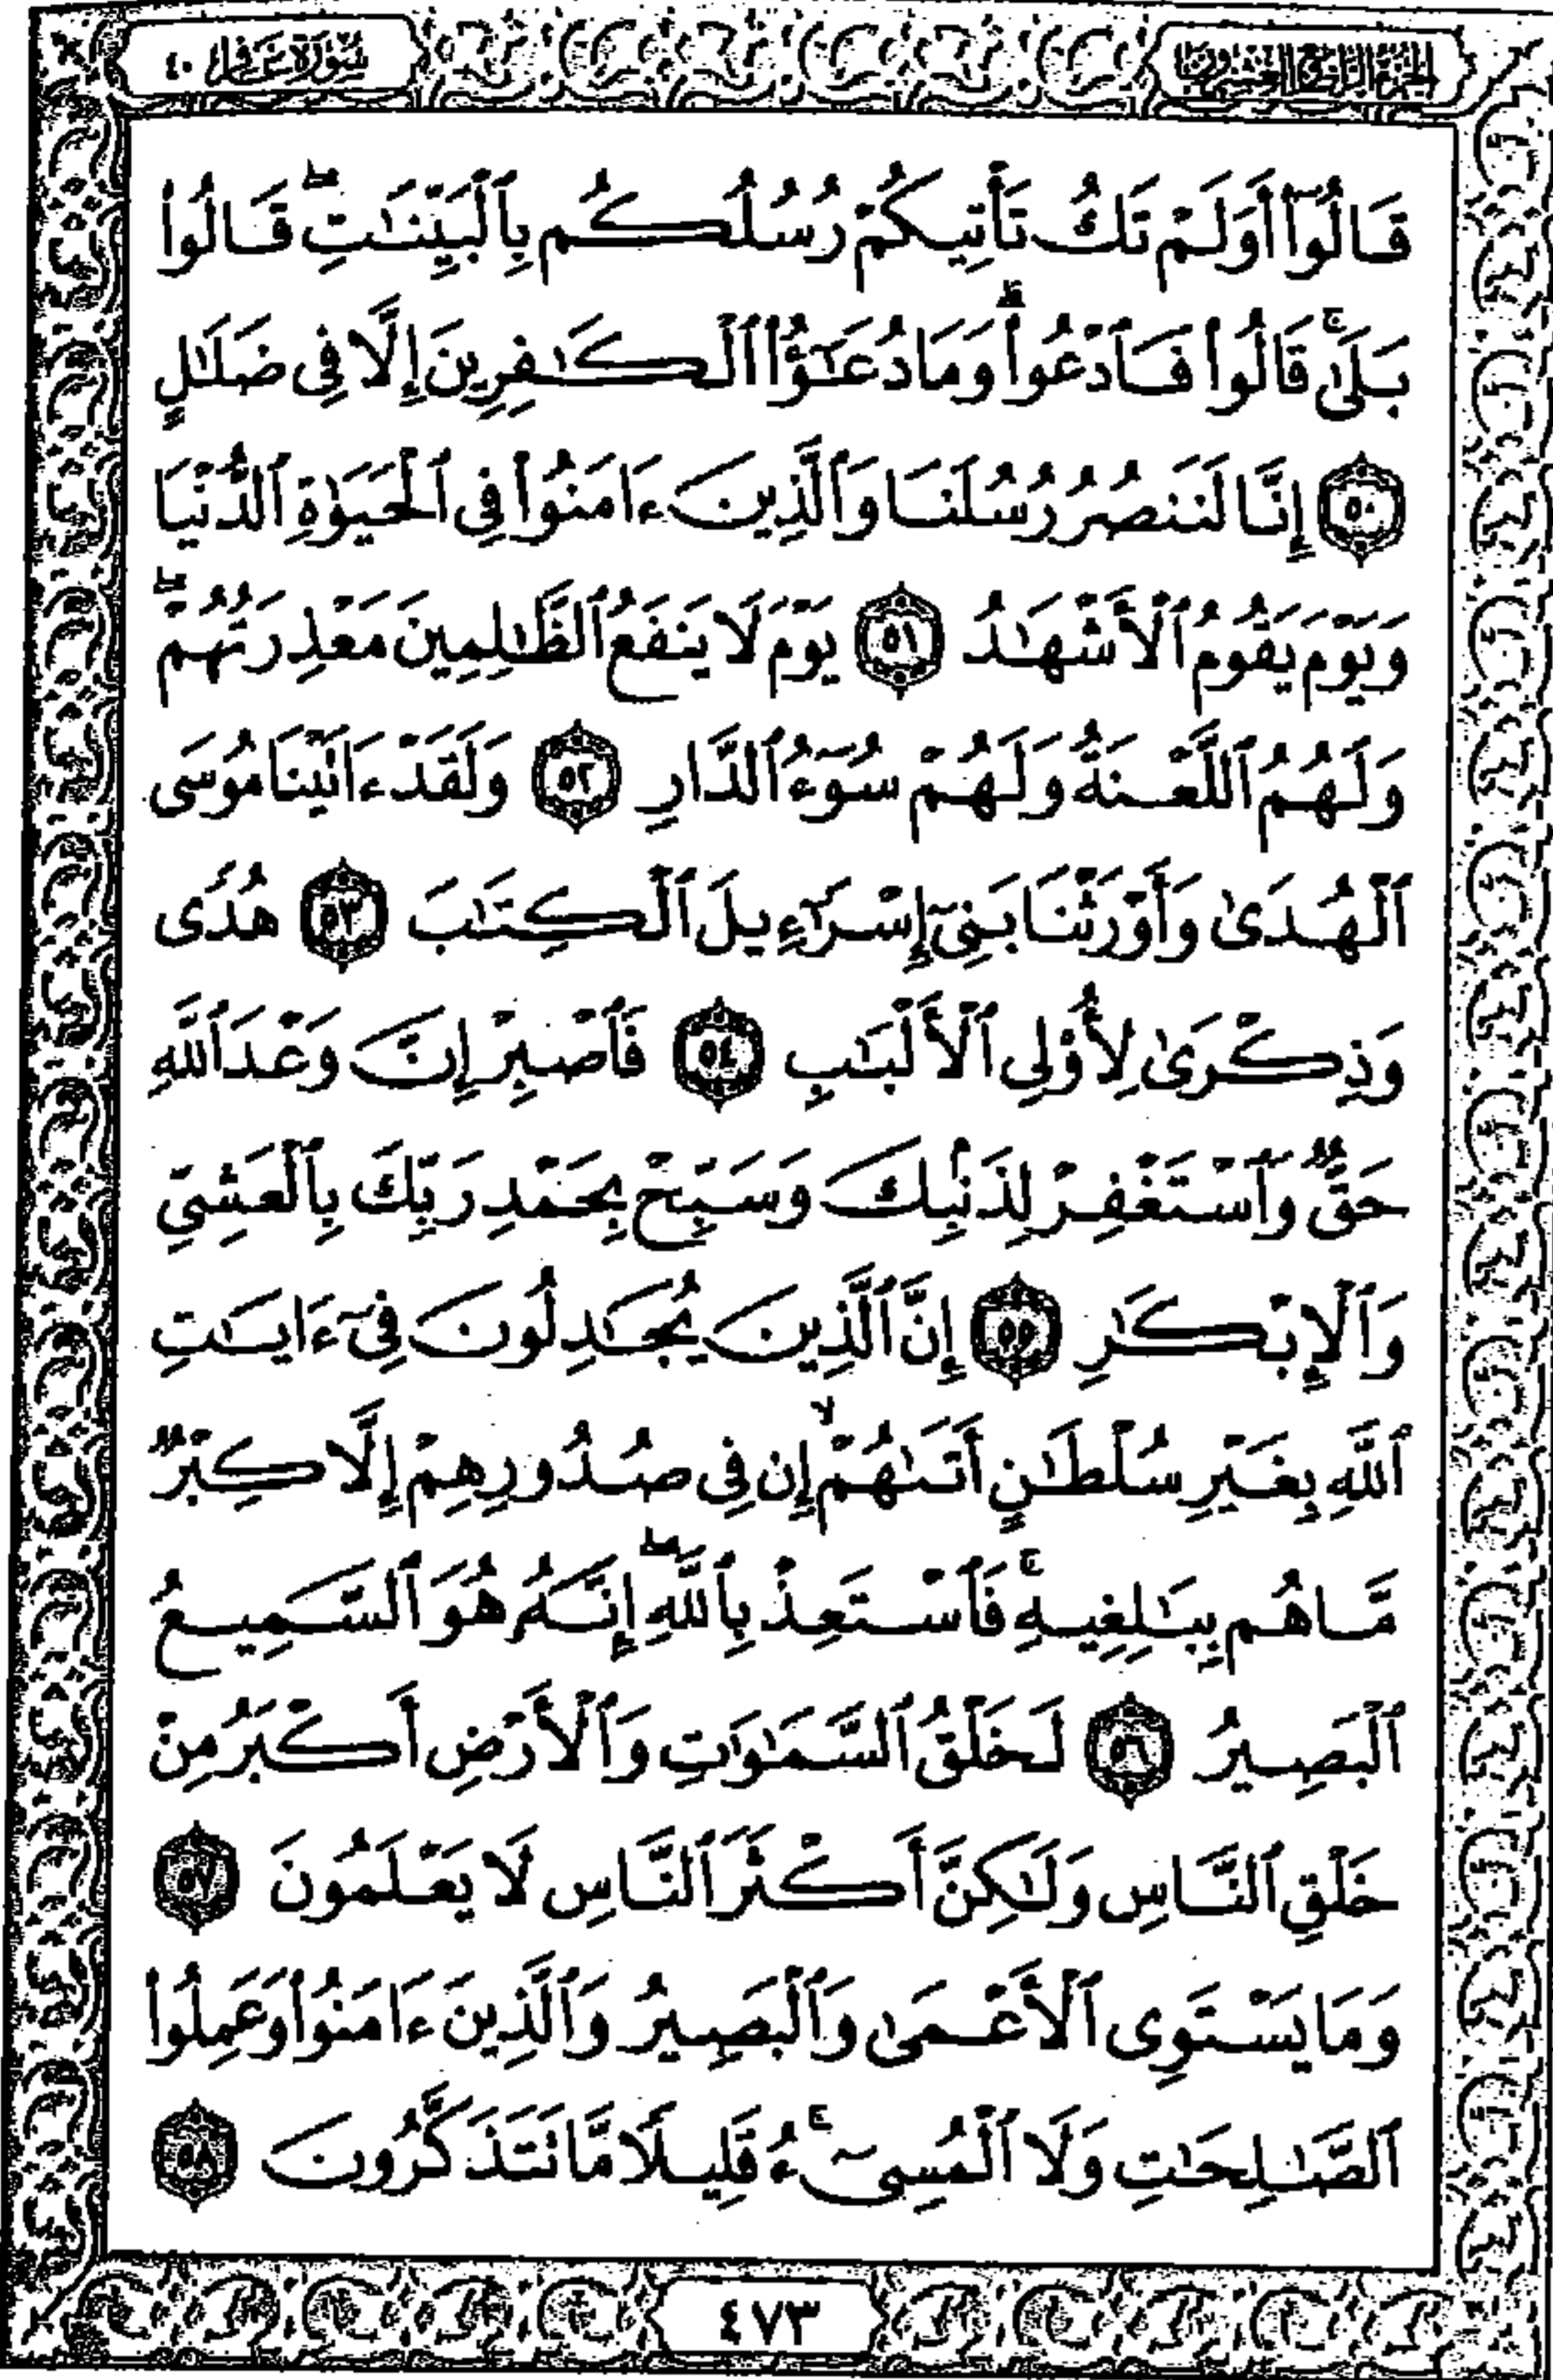 الجزء الرابع والعشرون
سورة غافر ٤٠
قَالُوٓا۟ أَوَلَمْ تَكُ تَأْتِيكُمْ رُسُلُكُم بِٱلْبَيِّنَـٰتِ ۖ قَالُوا۟
بَلَىٰ ۚ قَالُوا۟ فَٱدْعُوا۟ ۗ وَمَا دُعَـٰٓؤُا۟ ٱلْكَـٰفِرِينَ إِلَّا فِى ضَلَـٰلٍ
٥٠ إِنَّا لَنَنصُرُ رُسُلَنَا وَٱلَّذِينَ ءَامَنُوا۟ فِى ٱلْحَيَوٰةِ ٱلدُّنْيَا
وَيَوْمَ يَقُومُ ٱلْأَشْهَـٰدُ ٥١ يَوْمَ لَا يَنفَعُ ٱلظَّـٰلِمِينَ مَعْذِرَتُهُمْ ۖ
وَلَهُمُ ٱللَّعْنَةُ وَلَهُمْ سُوٓءُ ٱلدَّارِ ٥٢ وَلَقَدْ ءَاتَيْنَا مُوسَى
ٱلْهُدَىٰ وَأَوْرَثْنَا بَنِىٓ إِسْرَٰٓءِيلَ ٱلْكِتَـٰبَ ٥٣ هُدًى
وَذِكْرَىٰ لِأُو۟لِى ٱلْأَلْبَـٰبِ ٥٤ فَٱصْبِرْ إِنَّ وَعْدَ ٱللَّهِ
حَقٌّ وَٱسْتَغْفِرْ لِذَنۢبِكَ وَسَبِّحْ بِحَمْدِ رَبِّكَ بِٱلْعَشِىِّ
وَٱلْإِبْكَـٰرِ ٥٥ إِنَّ ٱلَّذِينَ يُجَـٰدِلُونَ فِىٓ ءَايَـٰتِ
ٱللَّهِ بِغَيْرِ سُلْطَـٰنٍ أَتَىٰهُمْ ۙ إِن فِى صُدُورِهِمْ إِلَّا كِبْرٌ
مَّا هُم بِبَـٰلِغِيهِ ۚ فَٱسْتَعِذْ بِٱللَّهِ ۖ إِنَّهُۥ هُوَ ٱلسَّمِيعُ
ٱلْبَصِيرُ ٥٦ لَخَلْقُ ٱلسَّمَـٰوَٰتِ وَٱلْأَرْضِ أَكْبَرُ مِنْ
خَلْقِ ٱلنَّاسِ وَلَـٰكِنَّ أَكْثَرَ ٱلنَّاسِ لَا يَعْلَمُونَ ٥٧
وَمَا يَسْتَوِى ٱلْأَعْمَىٰ وَٱلْبَصِيرُ وَٱلَّذِينَ ءَامَنُوا۟ وَعَمِلُوا۟
ٱلصَّـٰلِحَـٰتِ وَلَا ٱلْمُسِىٓءُ ۚ قَلِيلًا مَّا تَتَذَكَّرُونَ ٥٨
٤٧٣